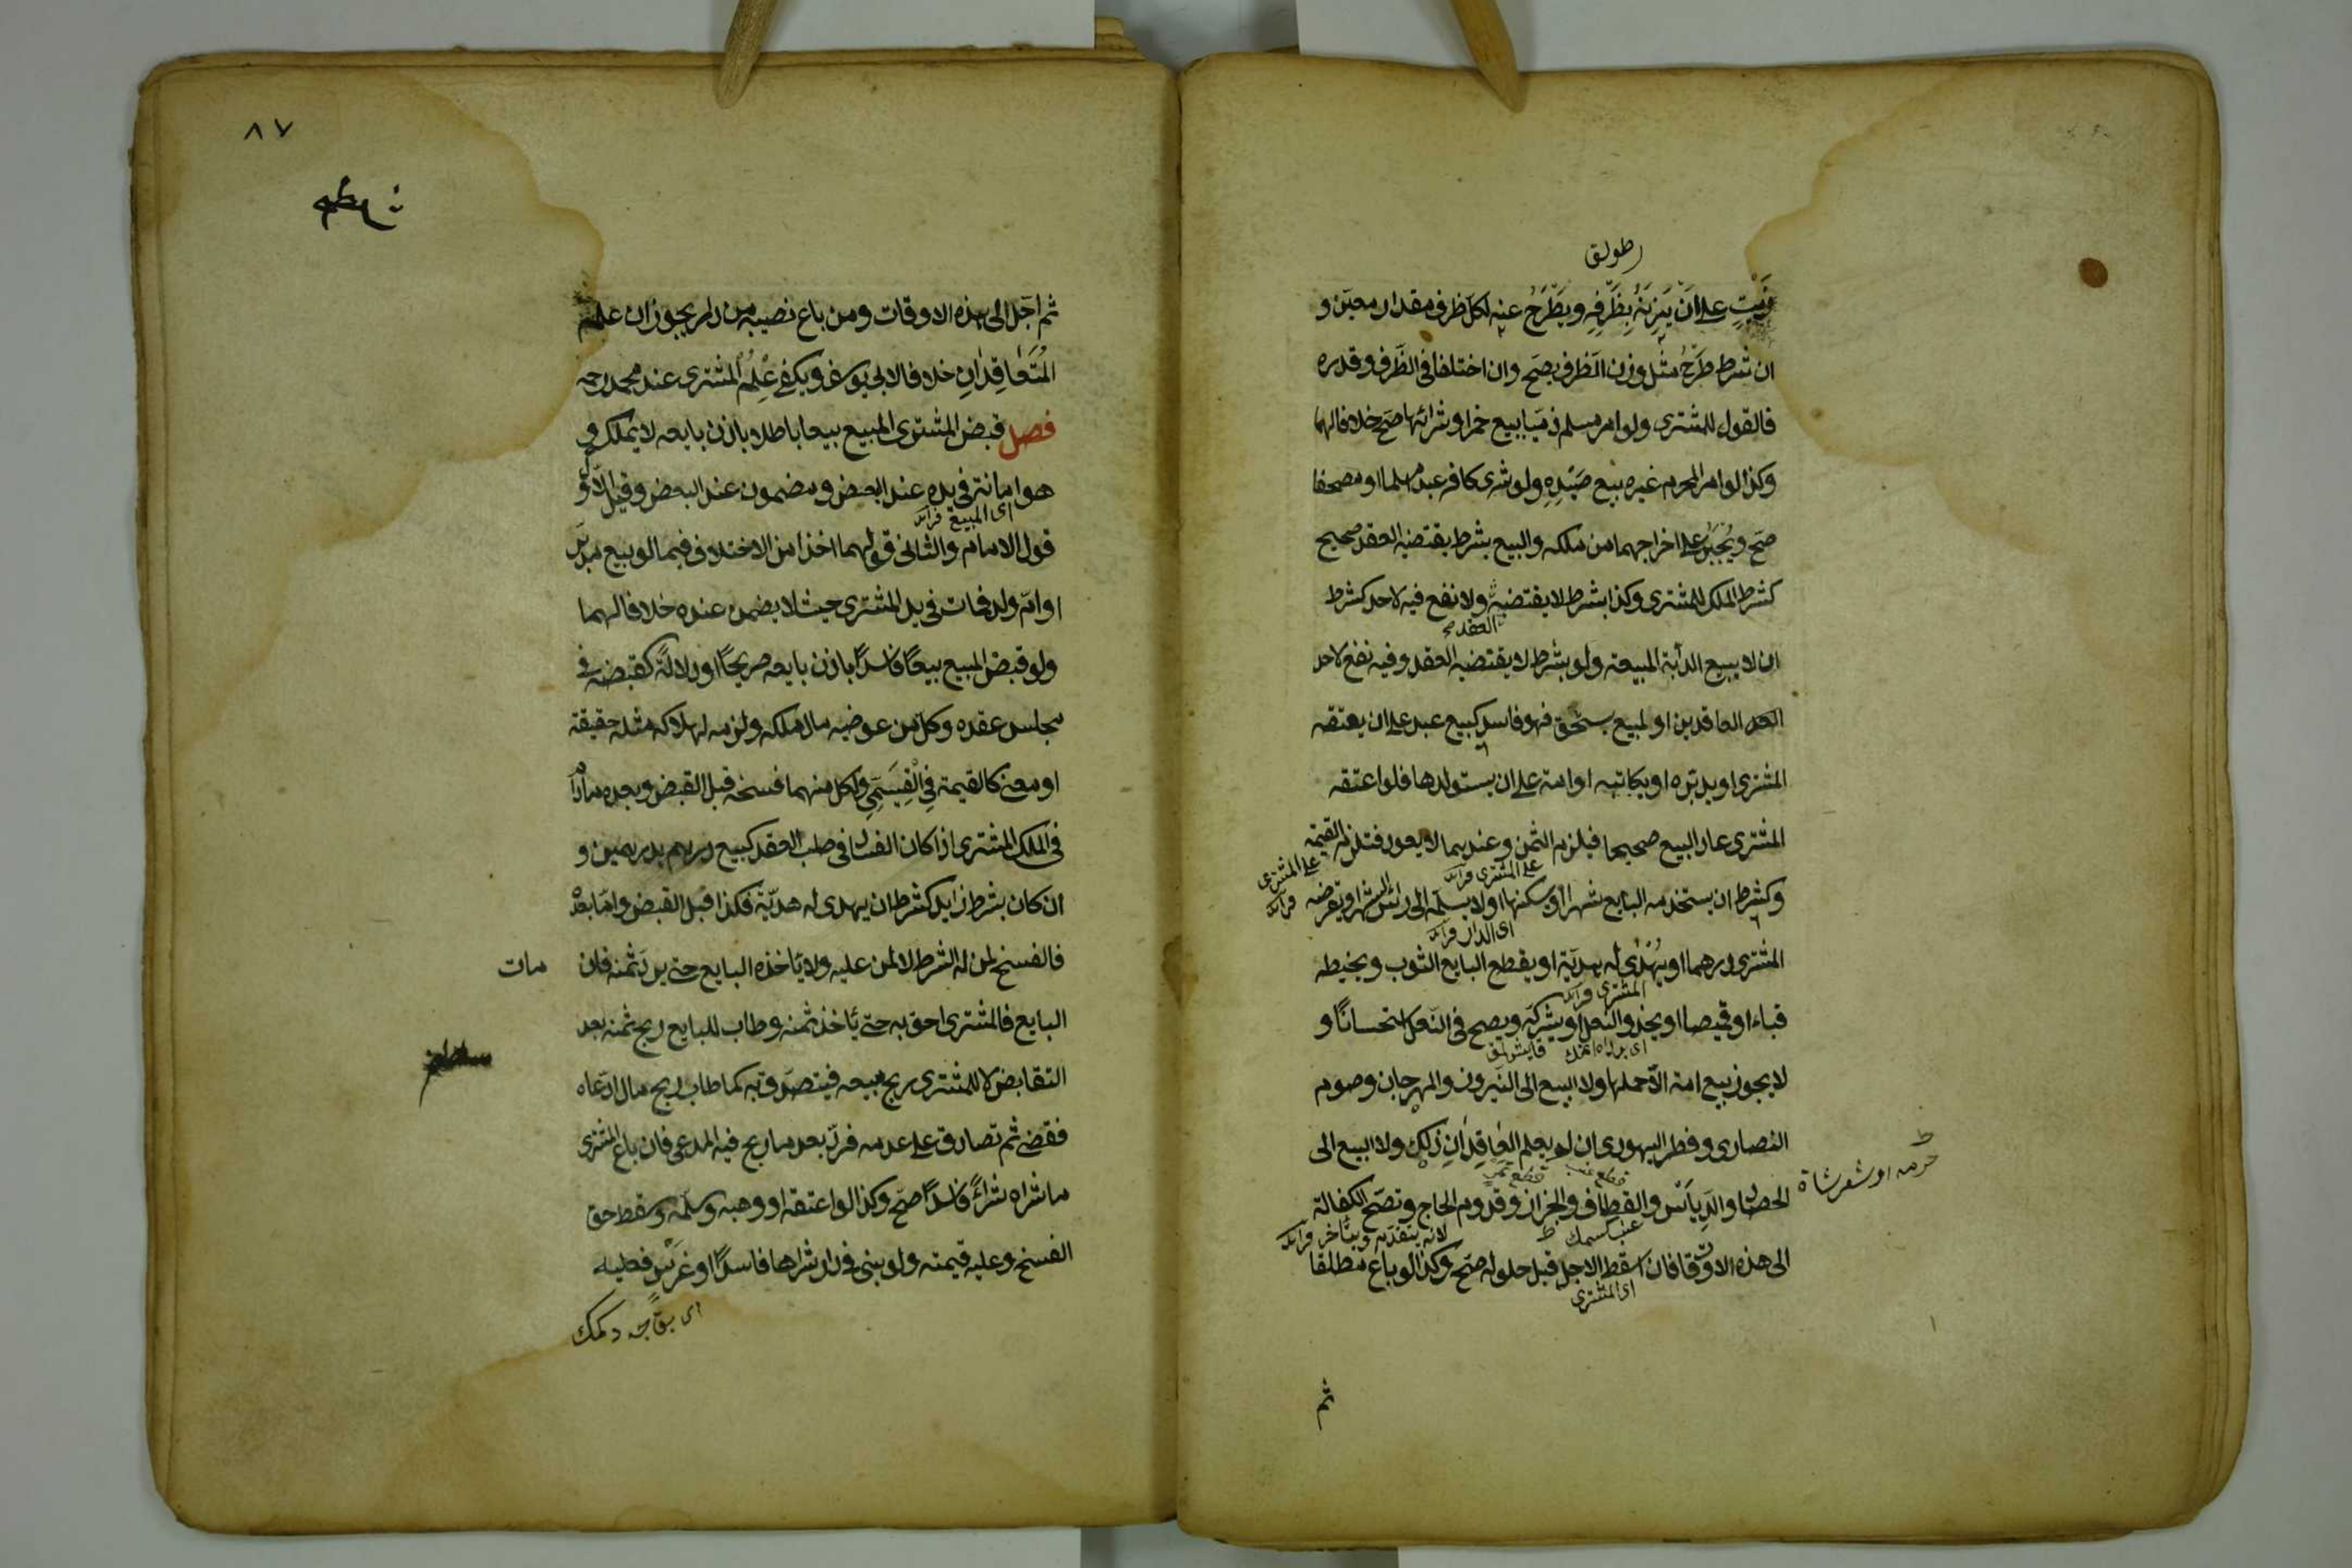 طولق
زيتٍ على اَنْ يَزِنَهُ بِظَرْفِهِ ويَطْرَحُ عنه لكل ظرف مقدار معين و
ان شرط طَرْحُ مثل وزن الظرف يصح وان اختلفا فى الظَرف وقدره
فالقول للمشترى ولو امر مسلم ذميا ببيع خمر او شرائها صح خلافا لهما
وكذا لو امر المحرم غيره ببيع صَيْدِهِ ولو شرى كافر عبدا مسلما او مصحفا
صح ويُجْبَرُ على اخراجهما من ملكه والبيع بشرط يقتضيه العقد صحيح
كشرط الملك للمشترى وكذا بشرط لا يقتضيه ولا نفع فيه لاحد كشرط
العقد صح
ان لا يبيع الدابة المبيعة ولو بشرط لا يقتضيه العقد وفيه نفع لاحد
العاقدين او لمبيع يستحق فهو فاسد كبيع عبد على ان يعتقه
المشترى او يدبّره او يكاتبه او امة على ان يستولدها فلو اعتقه
المشترى عاد البيع صحيحا فيلزم الثمن وعندهما لا يعود فتلزم القيمة
على المشترى فرائد
على المشترى فرائد
وكشرط ان يستخدمه البايع شهرا او يسكنها او لا يسلمه الى رأس الشهر او يقرضه
اى الدار فرائد
المشترى درهما او يُهْدى له هديّة او يقطع البايع الثوب ويخيطه
المشترى فرائد
قباء او قميصا او يحذو النعل او يشركه ويصح فى النّعل استحسانًا و
لا يجوز بيع امة الّا حملها ولا البيع الى النيروز والمهرجان وصوم
النصارى وفطر اليهودى ان لم يعلم العَاقِدَانِ ذلك ولا البيع الى
قطع عنب
الحصاد والدِيَاس والقطاف والجزاز وقدوم الحاج وتصح الكفالة
لانه يتقدم ويتأخر فرائد
الى هذه الاوقات فان اسقط الاجل قبل حلوله صحّ وكذا لو باع مطلقا
اى المشترى
ثم
٨٧
ثم اجّل الى هذه الاوقات ومن باع نصيبه من دار يجوز ان علم
المُتَعَاقِدَانِ خلافا لابى يوسف ويكفى عِلْمُ المشترى عند محمد رحمه
فصل قبض المشترى المبيع بيعا باطلا باذن بايعه لا يملك و
هو امانة فى يده عند البعض ومضمون عند البعض وقيل الاول
اى المبيع فرائد
قول الامام والثانى قولهما اخذا من الاختلاف فيما لو بيع مدبّر
او امّ ولد فمات فى يد المشترى حيث لا يضمن عنده خلافا لهما
ولو قبض المبيع بيعًا فاسدًا باذن بايعه صريحًا او دلالة كقبضه فى
مجلس عقده وكل من عوضيه مال ملكه ولزمه لهلاكه مثله حقيقة
او معنى كالقيمة فِى الْقِيَمِىّ ولكل منهما فسخه قبل القبض وبعده ما دام
فى ملك المشترى اذا كان الفساد فى صلب العقد كبيع درهم بدرهمين و
ان كان بشرط زايد كشرط ان يهدى له هديّة فكذا قبل القبض وامّا بعده
فالفسخ لمن له الشرط لا لمن عليه ولا يأخذه البايع حتى يرد ثمنه فان مات
البايع فالمشترى احق به حتى يأخذ ثمنه وطاب للبايع ربح ثمنه بعد
التقابض لا للمشترى ربح مبيعه فيتصدّق به كما طاب ربح مال ادّعاه
فقضى ثم تصادقا على عدمه فردّ بعد ما ربح فيه المدعى فان باع المشترى
ما شراه شراءً فاسدًا صحّ وكذا لو اعتقه او وهبه وسلّمه وسقط حق
الفسخ وعليه قيمته ولو بنى فى دار شراها فاسدًا او غَرَسَ فعليه